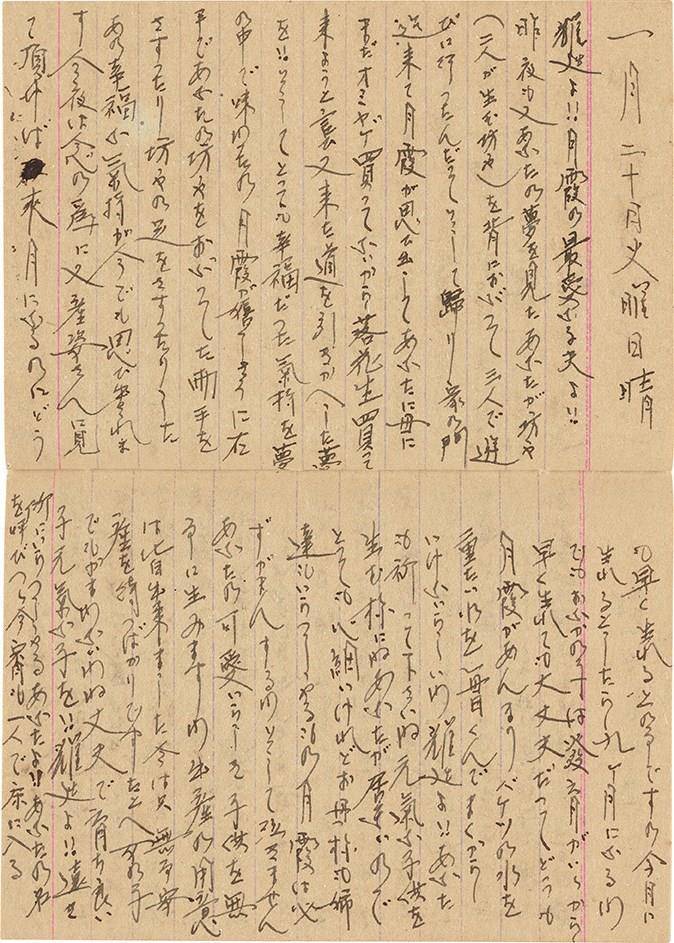 一月二十月火曜日晴
耀廷よ!!月霞の最愛なる夫よ!!
昨夜も又あなたの夢を見たあなたが坊や
(二人が生む坊や)を背におぶつて三人で遊
びに行つたんだつてそして歸り家の門
迄来て月霞が思ひ出してあなたに母に
まだオミヤゲ買つてないから落花生買つて
来ようと裏又来た道を引きかへした夢
を!!そしてとつても幸福だつた氣持を夢
の中で味わたの月霞が獲しさうに右
手であなたの坊やをおぶつてした両手を
さすつたり坊やの足をさすつたりした
あの幸福な氣持が今でも思ひ出されま
す今夜は念の爲に又産婆さんに見
て頂けば来月になるのにどう
も早く生れるとの事ですの今月に
生れるとしたら九ケ月になるわ
でもおなかの子は発育がいゝから
早く生れても大丈夫だつてどうも
月霞があんまりバケツの水を
重たい水を一番くんでまくから
いけないらしいわ耀廷よ!!あなた
も祈つて下さいね元氣な子供を
生む様にねあなたが居ないので
とつても心細いけれどお母様も姉
達もいらつしやるもの月霞は必
ずがまんするわそして泣きません
あなたの可愛いらしき子供を無
事に生みますわ出産の用意
は皆出来ました今は只無事安
産を待つばかりですたとへ女の子
でもかまわないわね丈夫で育ち良い
子元氣な子を!!耀廷よ!!遠き
所にいらつしやるあなたよ!!あなたの名
を呼びつゝ今宵も一人で床に入る